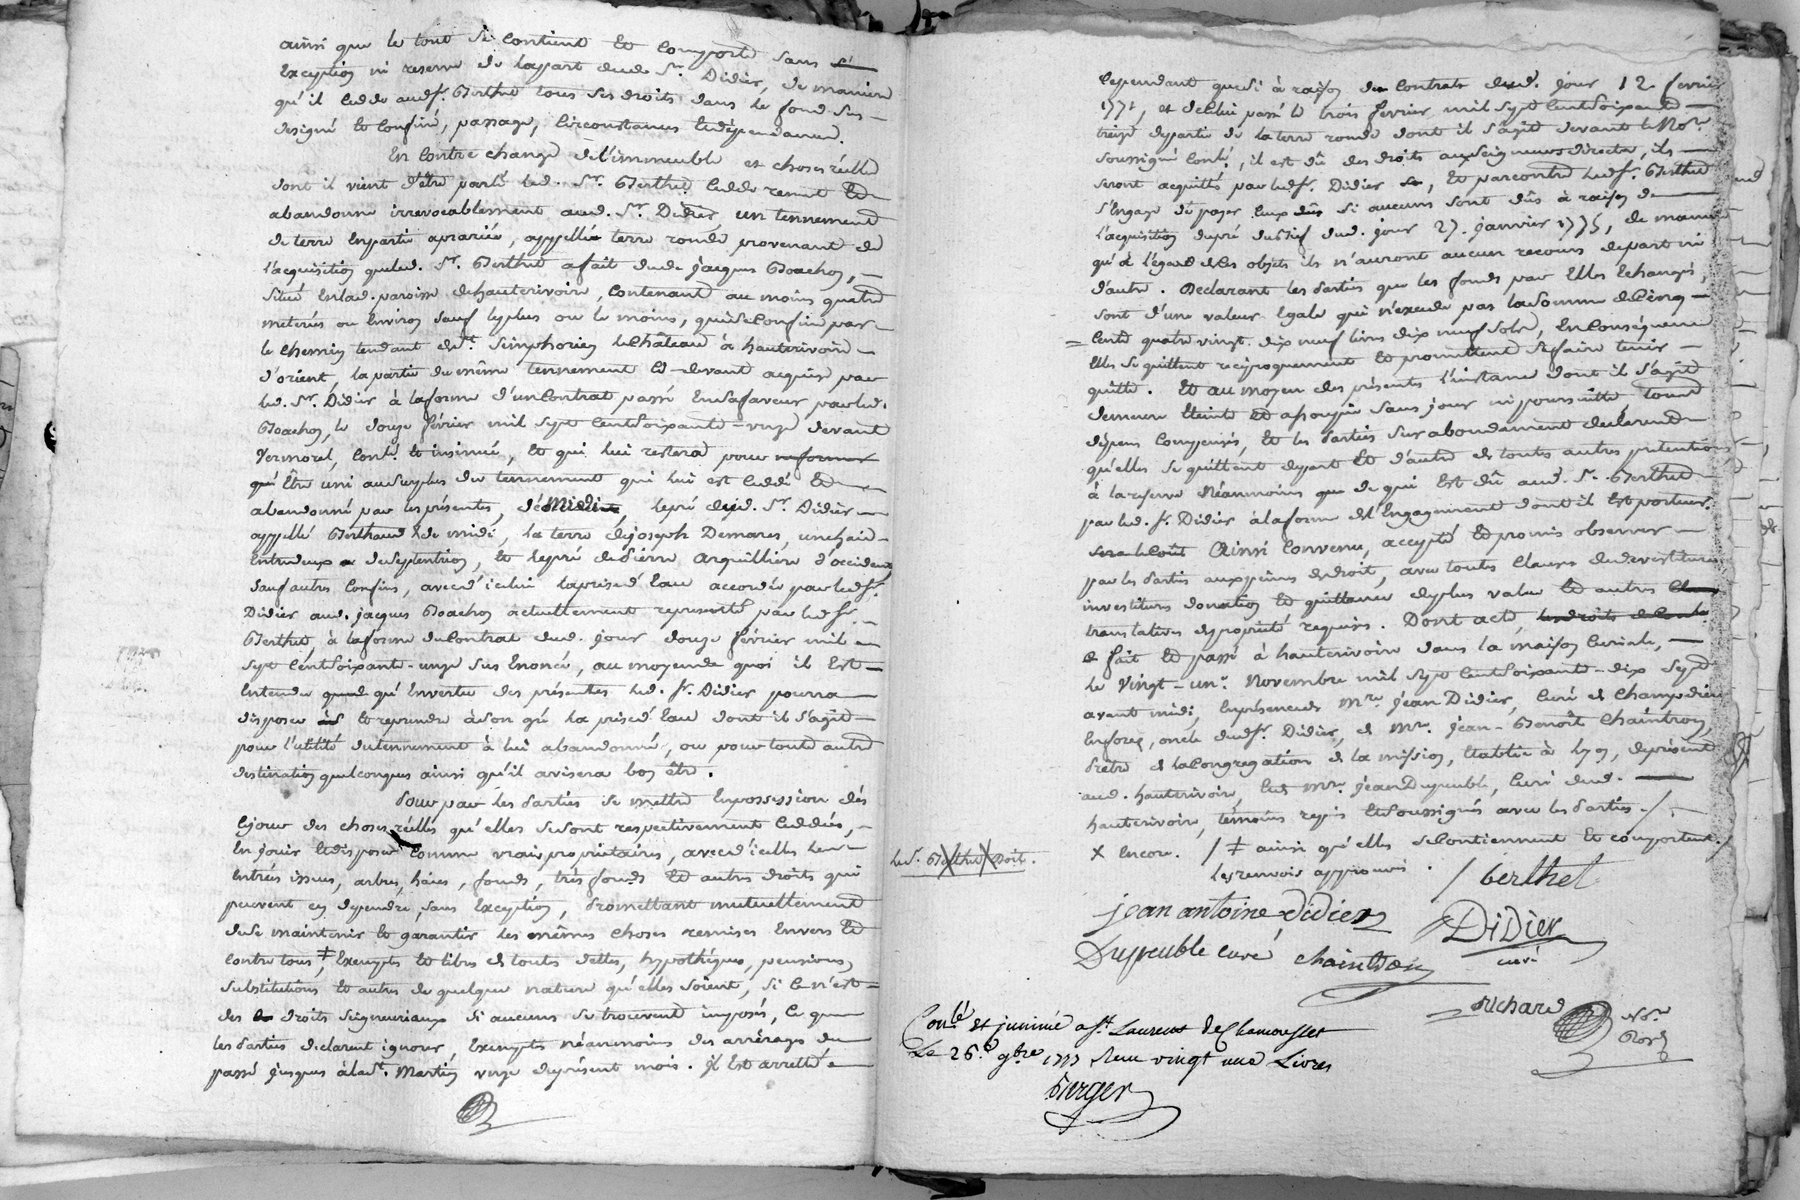 ainsi que le tout se contient et comporte sans
exception ni reserve de lappart dud. Sr. Didier, de maniere
qu'il cedde aud Sr. Berthet tous ses droits dans le fond sus-
designé et confiné, passage, circonstances et dépendances.
En contre change de l'immeuble et choses réelles
dont il vient d'être parlé led. Sr. Berthet cedde remet et
abandonne irrevocablement aud. Sr. Didier, un tennement
de terre en partie aprariée, appellée terre ronde provenant de
l'acquisition que led. Sr. Berthet a fait dud. jacques Boachon,
situé en lad. paroisse de hauterivoire, contenant au moins quatre
meterées ou environ sauf le plus ou le moins, qui se confine par
le chemin tendant de St. Simphorien le Château à hauterivoire
d'orient, la partie du même tennement ci-devant acquise par
led. Sr. Didier à la forme d'un contrat passé en sa faveur par led.
Boachon, le douze février mil sept cent soixante-onze devant
Vermorel, conlé. et insinué, et qui lui restera pour
qu' être uni au surplus du tennement qui lui est ceddé et
abandonné par les présentes, de Midi, le pré dud. Sr. Didier
appellé Berthaud de midi, la terre de joseph Demares, une haie
entredeux de septentrion, et le pré de Pierre Arquilliere d'occident
sauf autres confins, avec d'icelui la prise d'eau accordée par led Sr.
Didier aud. jacques Boachon actuellement représenté par led Sr.
Berthet, à la forme du contrat dud. jour douze février mil
sept cent soixante-onze sus enoncé, au moyen de quoi il est
entendu qu'en vertu des présentes led. Sr. Didier pourra
disposer et reprendre à son gré la prise d'eau dont il s'agit
pour l'utilité du tennement à lui abandonné, ou pour toute autre
destination quelconques ainsi qu'il avisera bon être.
Pour par les Parties se mettre en possession dès
ce jour des choses réelles qu'elles se sont respectivement ceddées,
en jouir et disposer comme vrais proprietaires, avec d'icelles leurs
entrées issues, arbres, haies, fonds, très fonds et autres droits qui
peuvent en dependre, sans exception, Promettant mutuellement
de se maintenir et garantir les mêmes choses remises envers et
contre tous, ‡ exempts et libres de toutes dettes, hypothéques, pensions,
substitutions et autres de quelque nature qu'elles soient, si ce n'est
des droits seigneuriaux si aucuns se trouvent imposés, ce que
les Parties declarent ignorer, exempts néanmoins des arrérages du
passé jusques à la St. Martin onze du présent mois. il est arretté
cependant que si à raison des contrats dud. jour 12 fevrier
1771, et de celui passé le trois février mil sept cent soixante
treize de partie de la terre ronde dont il s'agit devant le Nore.
soussigné conlé., il est dû des droits aux seigneurs directs, ils
seront acquittés par led Sr. Didier, et par contre led Sr. Berthet
s'engage de payer ceux dûs si aucuns sont dûs à raison de
l'acquisition du pré du Bief dud. jour 27. janvier 1775, de maniere
qu'à l'égard de ces objets ils n'auront aucun recours de part ni
d'autre. Declarant les Parties que les fonds par elles echangés,
sont d'une valeur egale qui n'excede pas la somme de cinq
cents quatre vingt dix neuf livres dix neuf sols, en conséquence
elles se quittent reciproquement et promettent se faire tenir
quitte. Et au moyen des présentes l'instance dont il s'agit
demeure éteinte et assoupie sans jour ni poursuitte tous
dépens compensés, et les Parties surabondamment declarent
qu'elles se quittent de part et d'autre de toutes autres prétentions
à la reserve néanmoins de ce qui est dû aud. Sr. Berthet
par led. Sr. Didier à la forme de l'engagement dont il est porteur.
Ainsi convenu, accepté et promis observer
par les Parties aux peines de droit, avec toutes clauses de devestitures
investitures donation et quittance de plus value et autres
translatives de propriété requises. Dont acte,
fait et passé à hauterivoire dans la maison curiale,
le vingt-un. novembre mil sept cent soixante-dix sept
avant midi, en présence de Mre. jean Didier, curé de Champdieu
en forez, oncle dud Sr. Didier, et Mre. jean-Benoît Chaintron,
Prêtre de la Congregation de la mission, etablie à lyon, de présent
aud. hauterivoire, et de Mre. jean Dupeuble, curé dud.
hauterivoire, témoins requis et soussignés avec les Parties./.
led. Sr. Berthet doit.
X encore. / ‡ ainsi qu'elles se contiennent et comportent./
les renvois approuvés. / berthet
jean antoine didier
DiDier
curé
Dupeuble curé chaintron
Richard
Nre.
Royal
Conlé et jnsinué a St Laurent de Chamousset
Le 26.e 9bre 1777 Recu vingt une Livres
Berger